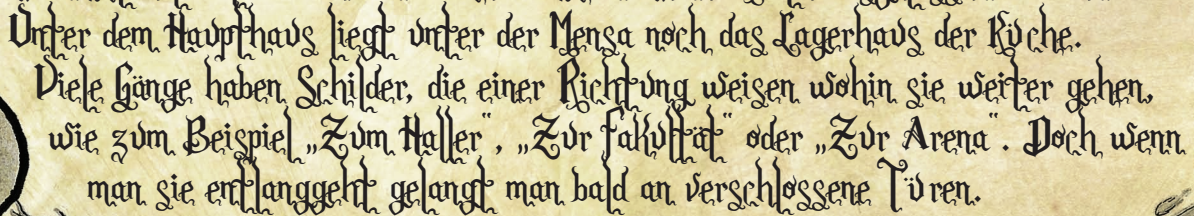 Unter dem Haupthaus liegt unter der Mensa noch das Lagerhaus der Küche.
Viele Gänge haben Schilder, die einer Richtung weisen wohin sie weiter gehen,
wie zum Beispiel „Zum Haller“, „Zur Fakultät“ oder „Zur Arena“. Doch wenn
man sie entlanggeht gelangt man bald an verschlossene Türen.